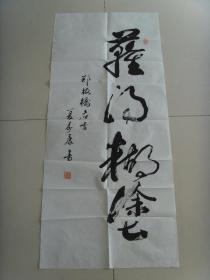 難得糊塗
郑板橋名言
书